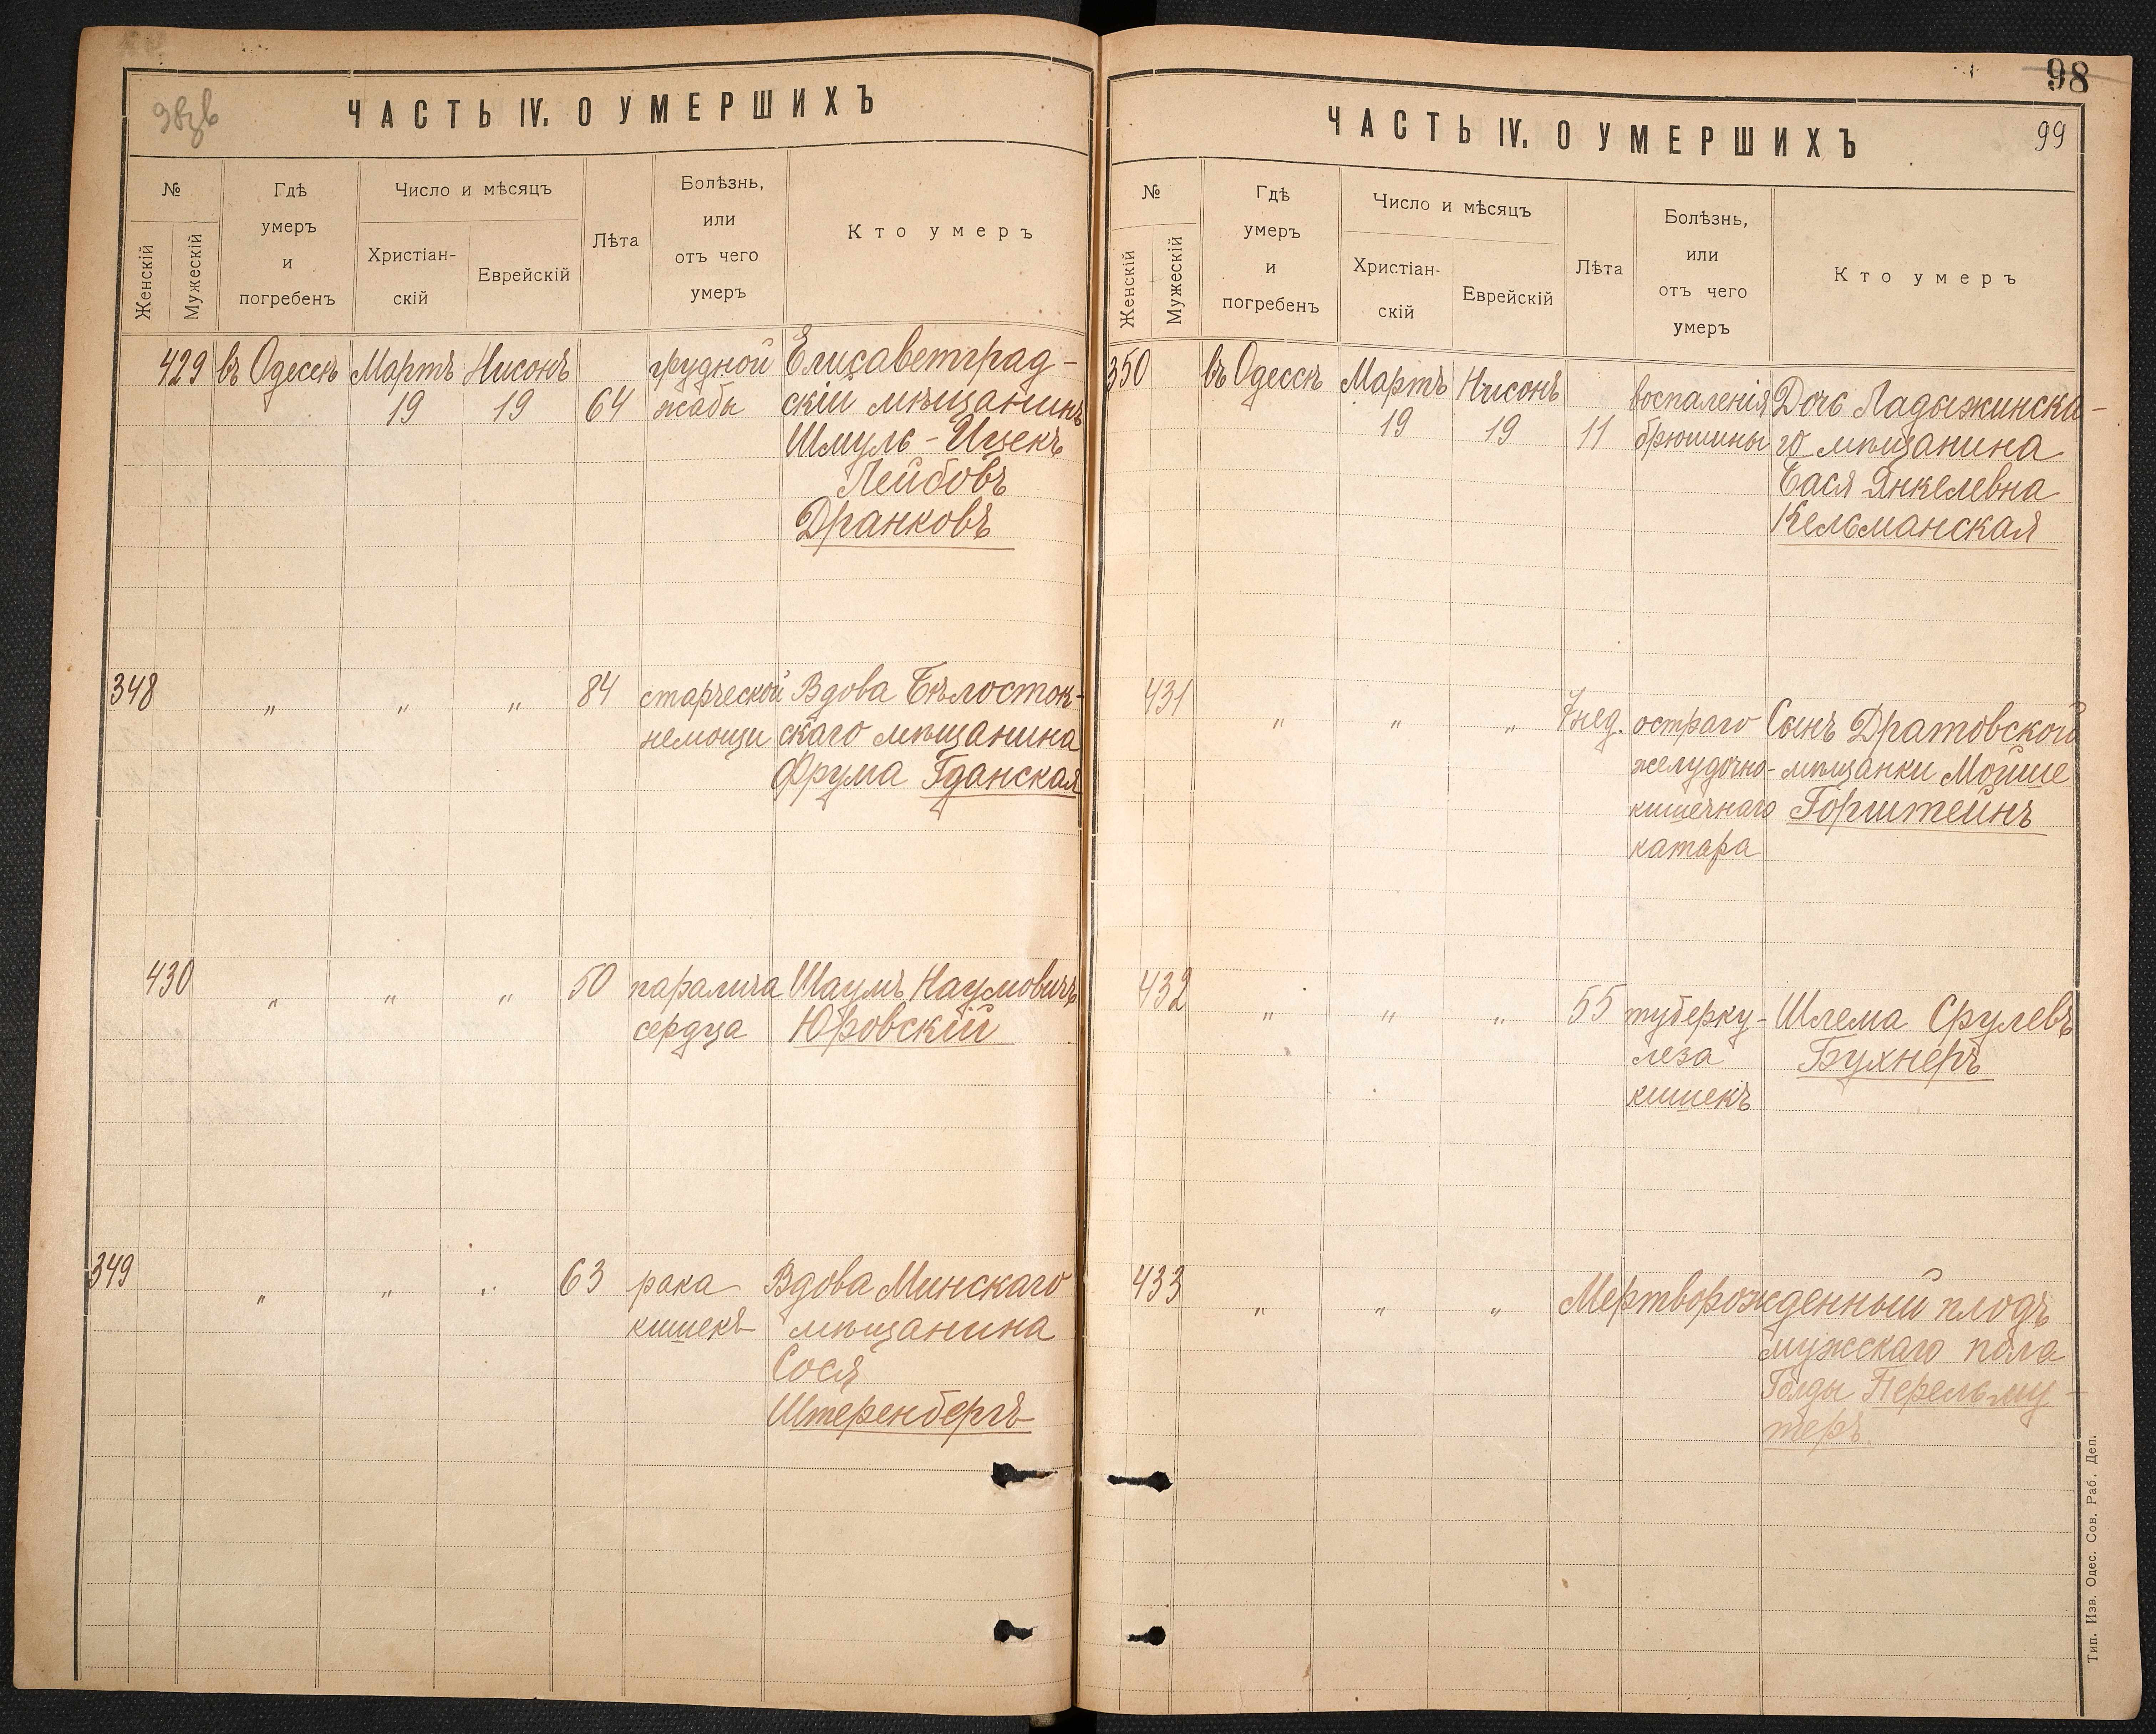 ЧАСТЬ IV. О УМЕРШИХЪ
№
Женскій
Мужескій
Гдѣ
умеръ
и
погребенъ
Число и мѣсяцъ
Христіан-
скій
Еврейскій
Лѣта
Болѣзнь,
или
отъ чего
умеръ
Кто умеръ
429 въ Одессѣ Мартъ Нисонъ грудной Елисаветград-
19 19 64 жабы скій мѣщанинъ
Шмуль-Ицекъ
Лейбовъ
Дранковъ
348 " " " 84 старческой Вдова Бѣлосток-
немощи скаго мѣщанина
Фрума Гданская
430 " " " 50 паралича Шаумъ Наумовичъ
сердца Юровскій
349 " " " 63 рака Вдова Минскаго
кишекъ мѣщанина
Сося
Штеренбергъ
98
99
ЧАСТЬ IV. О УМЕРШИХЪ
№
Женскій
Мужескій
Гдѣ
умеръ
и
погребенъ
Число и мѣсяцъ
Христіан-
скій
Еврейскій
Лѣта
Болѣзнь,
или
отъ чего
умеръ
Кто умеръ
350 въ Одессѣ Мартъ Нисонъ воспаленія Дочь Ладыжинска-
19 19 11 брюшины го мѣщанина
Бася Янкелевна
Кельманская
431 " " " 7 нед. остраго Сынъ Дратовской
желудочно- мѣщанки Мойше
кишечнаго Горштейнъ
катара
432 " " " 55 туберку- Шлема Срулевъ
леза Бухнеръ
кишекъ
433 " " " Мертворожденный плодъ
мужскаго пола
Голды Перельму-
теръ.
Тип. Изв. Одес. Сов. Раб. Деп.